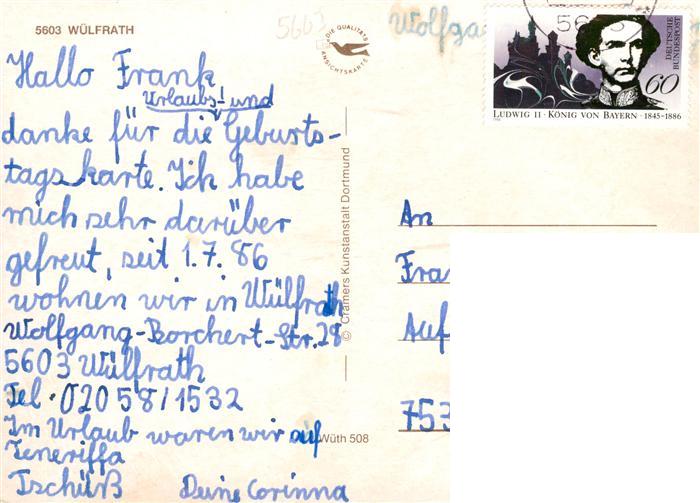 5603 WÜLFRATH
5603
DIE QUALITÄTS
ANSICHTSKARTE
Hallo Frank
Urlaubs- und
danke für die Geburts-
tagskarte. Ich habe
mich sehr darüber
gefreut, seit 1.7.86
wohnen wir in Wülfrath
Wolfgang-Borchert-Str. 28
5603 Wülfrath
Tel. 02058/1532
Im Urlaub waren wir auf
Teneriffa
Tschüß Deine Corinna
© Cramers Kunstanstalt Dortmund
Wüth 508
Wolfga
DEUTSCHE
BUNDESPOST
60
LUDWIG II · KÖNIG VON BAYERN · 1845-1886
An
Fra
Auf
753